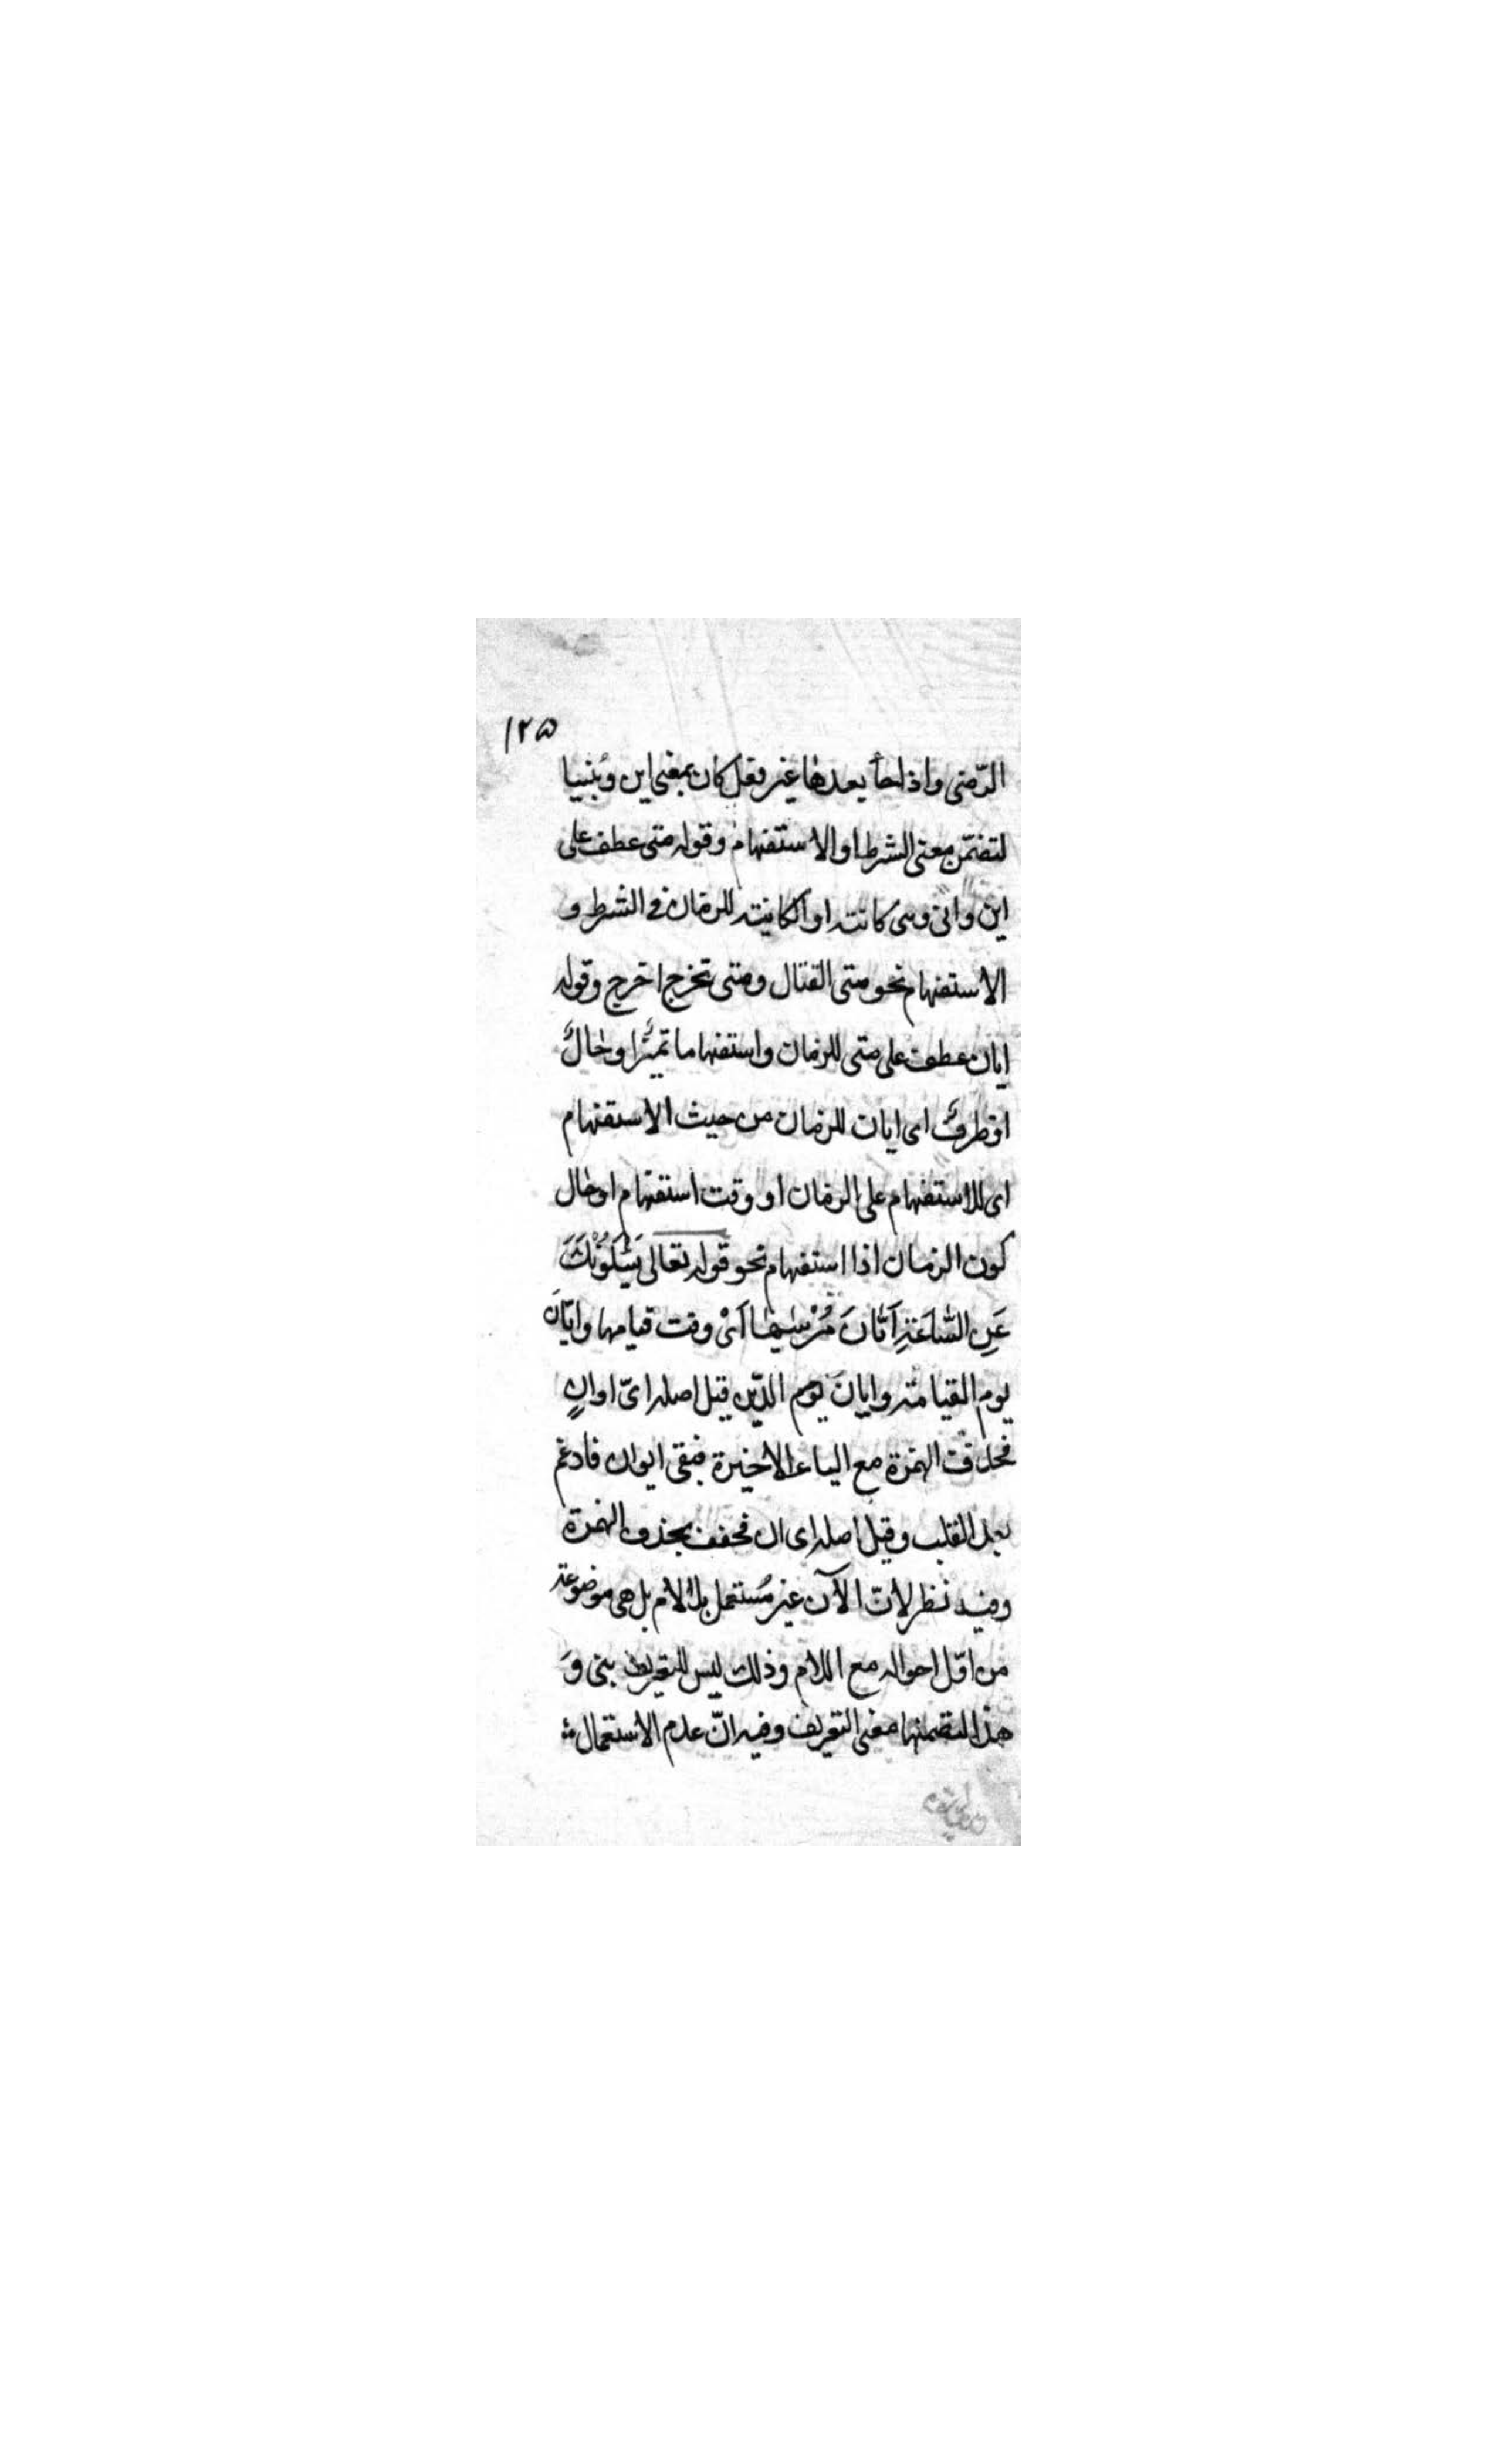 ١٢۵
الرّضى واذا جاء بعدها غير فعل كان بمعنى اين وبُنيا
لتضمّن معنى الشرط او الاستفهام وقوله متى عطف على
اين وانى وهى كائنة او الكائنة للزمان فى الشرط و
الاستفهام نحو متى القتال ومتى تخرج اخرج وقوله
ايان عطف على متى للزمان واستفهاما تميزا وحالً
اوظرفً اى ايان للزمان من حيث الاستفهام
اى للاستفهام على الزمان او وقت استفهام اوحال
كون الزمان اذا استفهام نحو قوله تعالى يَسْئَلُونَكَ
عَنِ السَّاعَةِ اَيَّانَ مُرْسٰيهٰا اَىْ وقت قيامها وايّانَ
يوم القيامة وايانَ يوم الدّين قيل اصله اىّ اوانٍ
فحذفت الهمزة مع الياء الاخيرة فبقى ايوان فادغم
بعد القلب وقيل اصله اى ان فخفف بحذف الهمزة
وفيه نظر لانّ الآن غير مُستعمل بلا لام بل هى موضوعة
من اوّل احواله مع اللام وذلك ليس للتعريف بنى وَ
هذا لتضمنها معنى التعريف وفيه انّ عدم الاستعمال